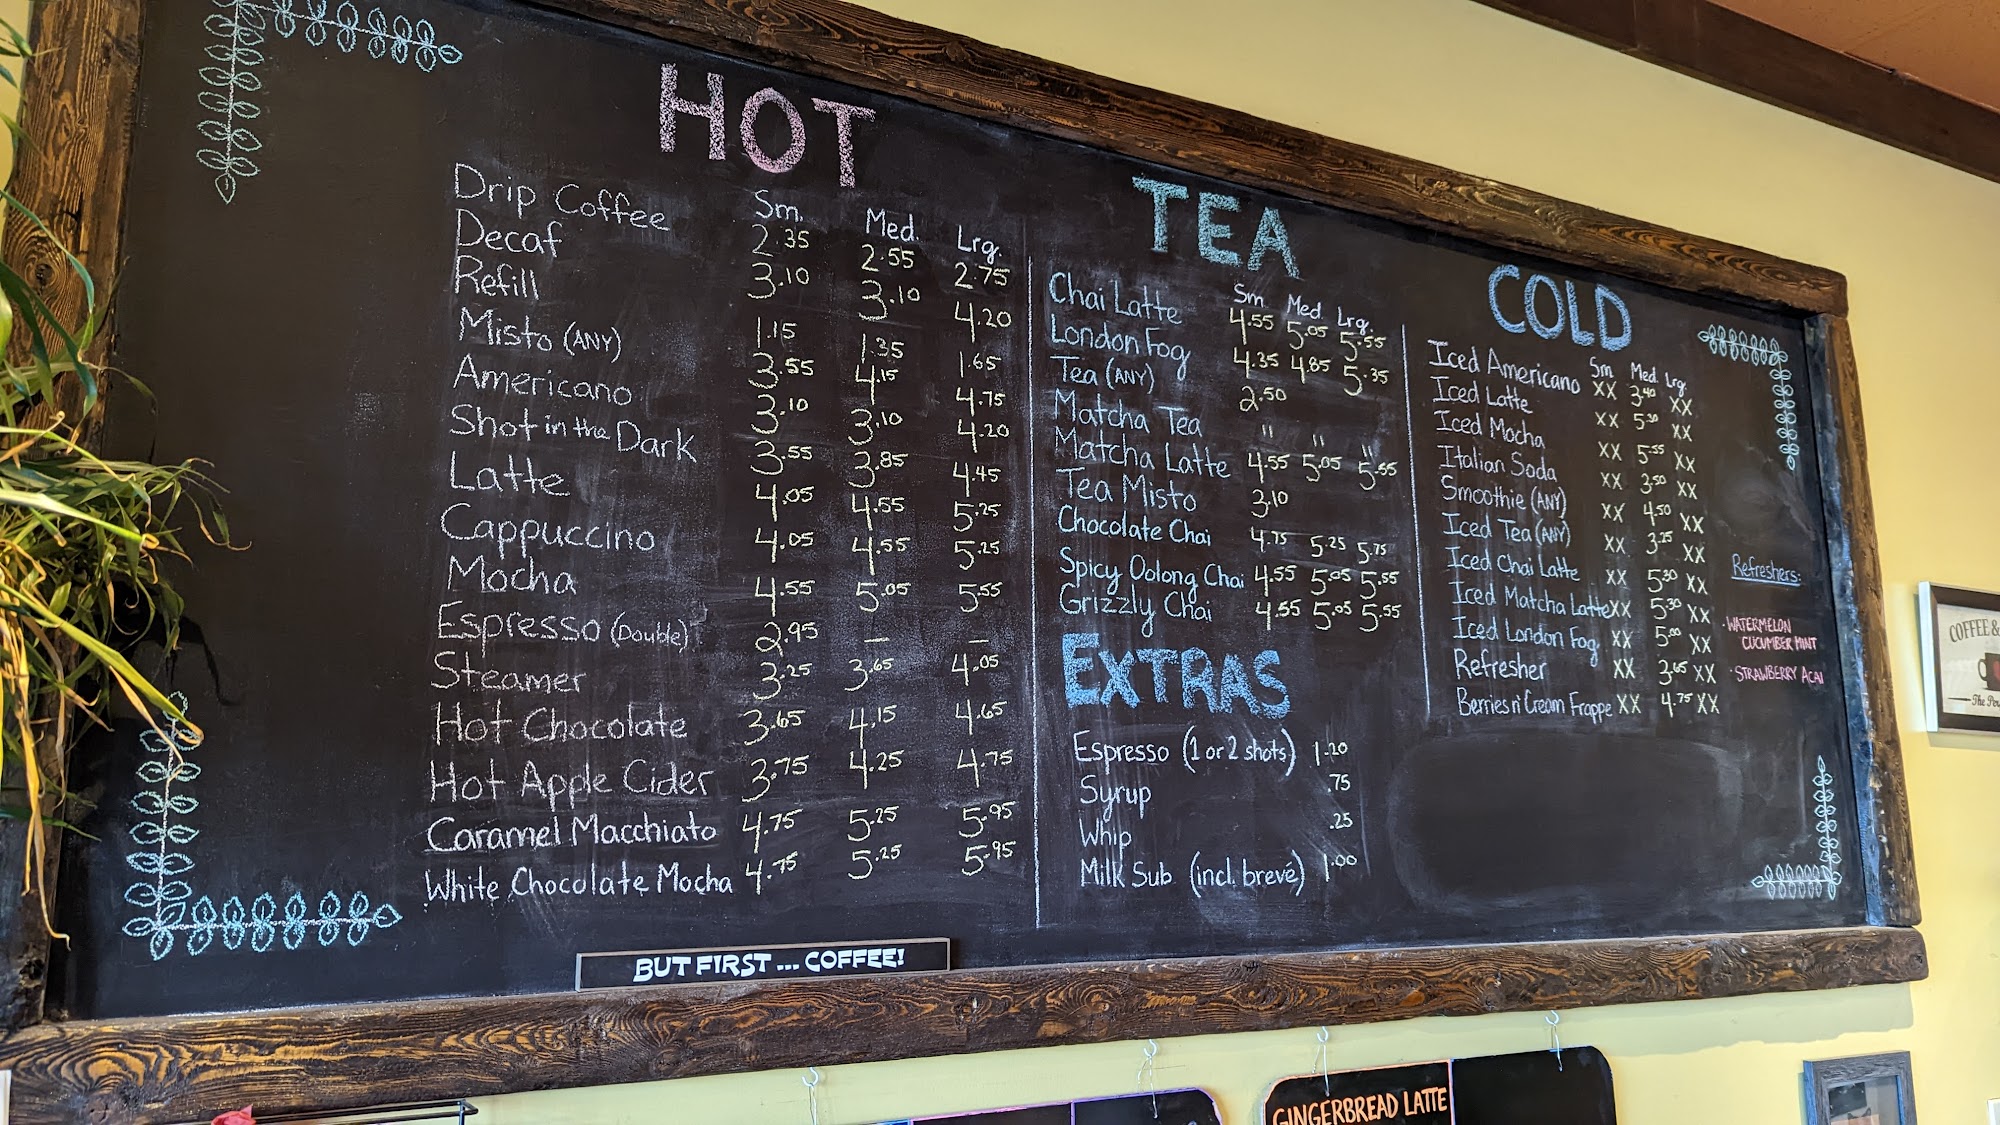 HOT
Sm. Med. Lrg.
Drip Coffee 2.35 2.55 2.75
Decaf 3.10 3.10 4.20
Refill 1.15 1.35 1.65
Misto (ANY) 3.55 4.15 4.75
Americano 3.10 3.10 4.20
Shot in the Dark 3.55 3.85 4.45
Latte 4.05 4.55 5.25
Cappuccino 4.05 4.55 5.25
Mocha 4.55 5.05 5.55
Espresso (Double) 2.95 — —
Steamer 3.25 3.65 4.05
Hot Chocolate 3.65 4.15 4.65
Hot Apple Cider 3.75 4.25 4.75
Caramel Macchiato 4.75 5.25 5.95
White Chocolate Mocha 4.75 5.25 5.95
TEA
Sm. Med. Lrg.
Chai Latte 4.55 5.05 5.55
London Fog 4.35 4.85 5.35
Tea (ANY) 2.50
Matcha Tea " " "
Matcha Latte 4.55 5.05 5.55
Tea Misto 3.10
Chocolate Chai 4.75 5.25 5.75
Spicy Oolong Chai 4.55 5.05 5.55
Grizzly Chai 4.55 5.05 5.55
EXTRAS
Espresso (1 or 2 shots) 1.20
Syrup .75
Whip .25
Milk Sub (incl. brevé) 1.00
COLD
Sm Med. Lrg.
Iced Americano XX 3.40 XX
Iced Latte XX 5.30 XX
Iced Mocha XX 5.55 XX
Italian Soda XX 3.50 XX
Smoothie (ANY) XX 4.50 XX
Iced Tea (ANY) XX 3.25 XX
Iced Chai Latte XX 5.30 XX
Iced Matcha Latte XX 5.30 XX
Iced London Fog XX 5.00 XX
Refresher XX 3.65 XX
Berries n' Cream Frappe XX 4.75 XX
Refreshers:
· WATERMELON
CUCUMBER MINT
· STRAWBERRY ACAI
BUT FIRST ... COFFEE!
COFFEE &
The
GINGERBREAD LATTE